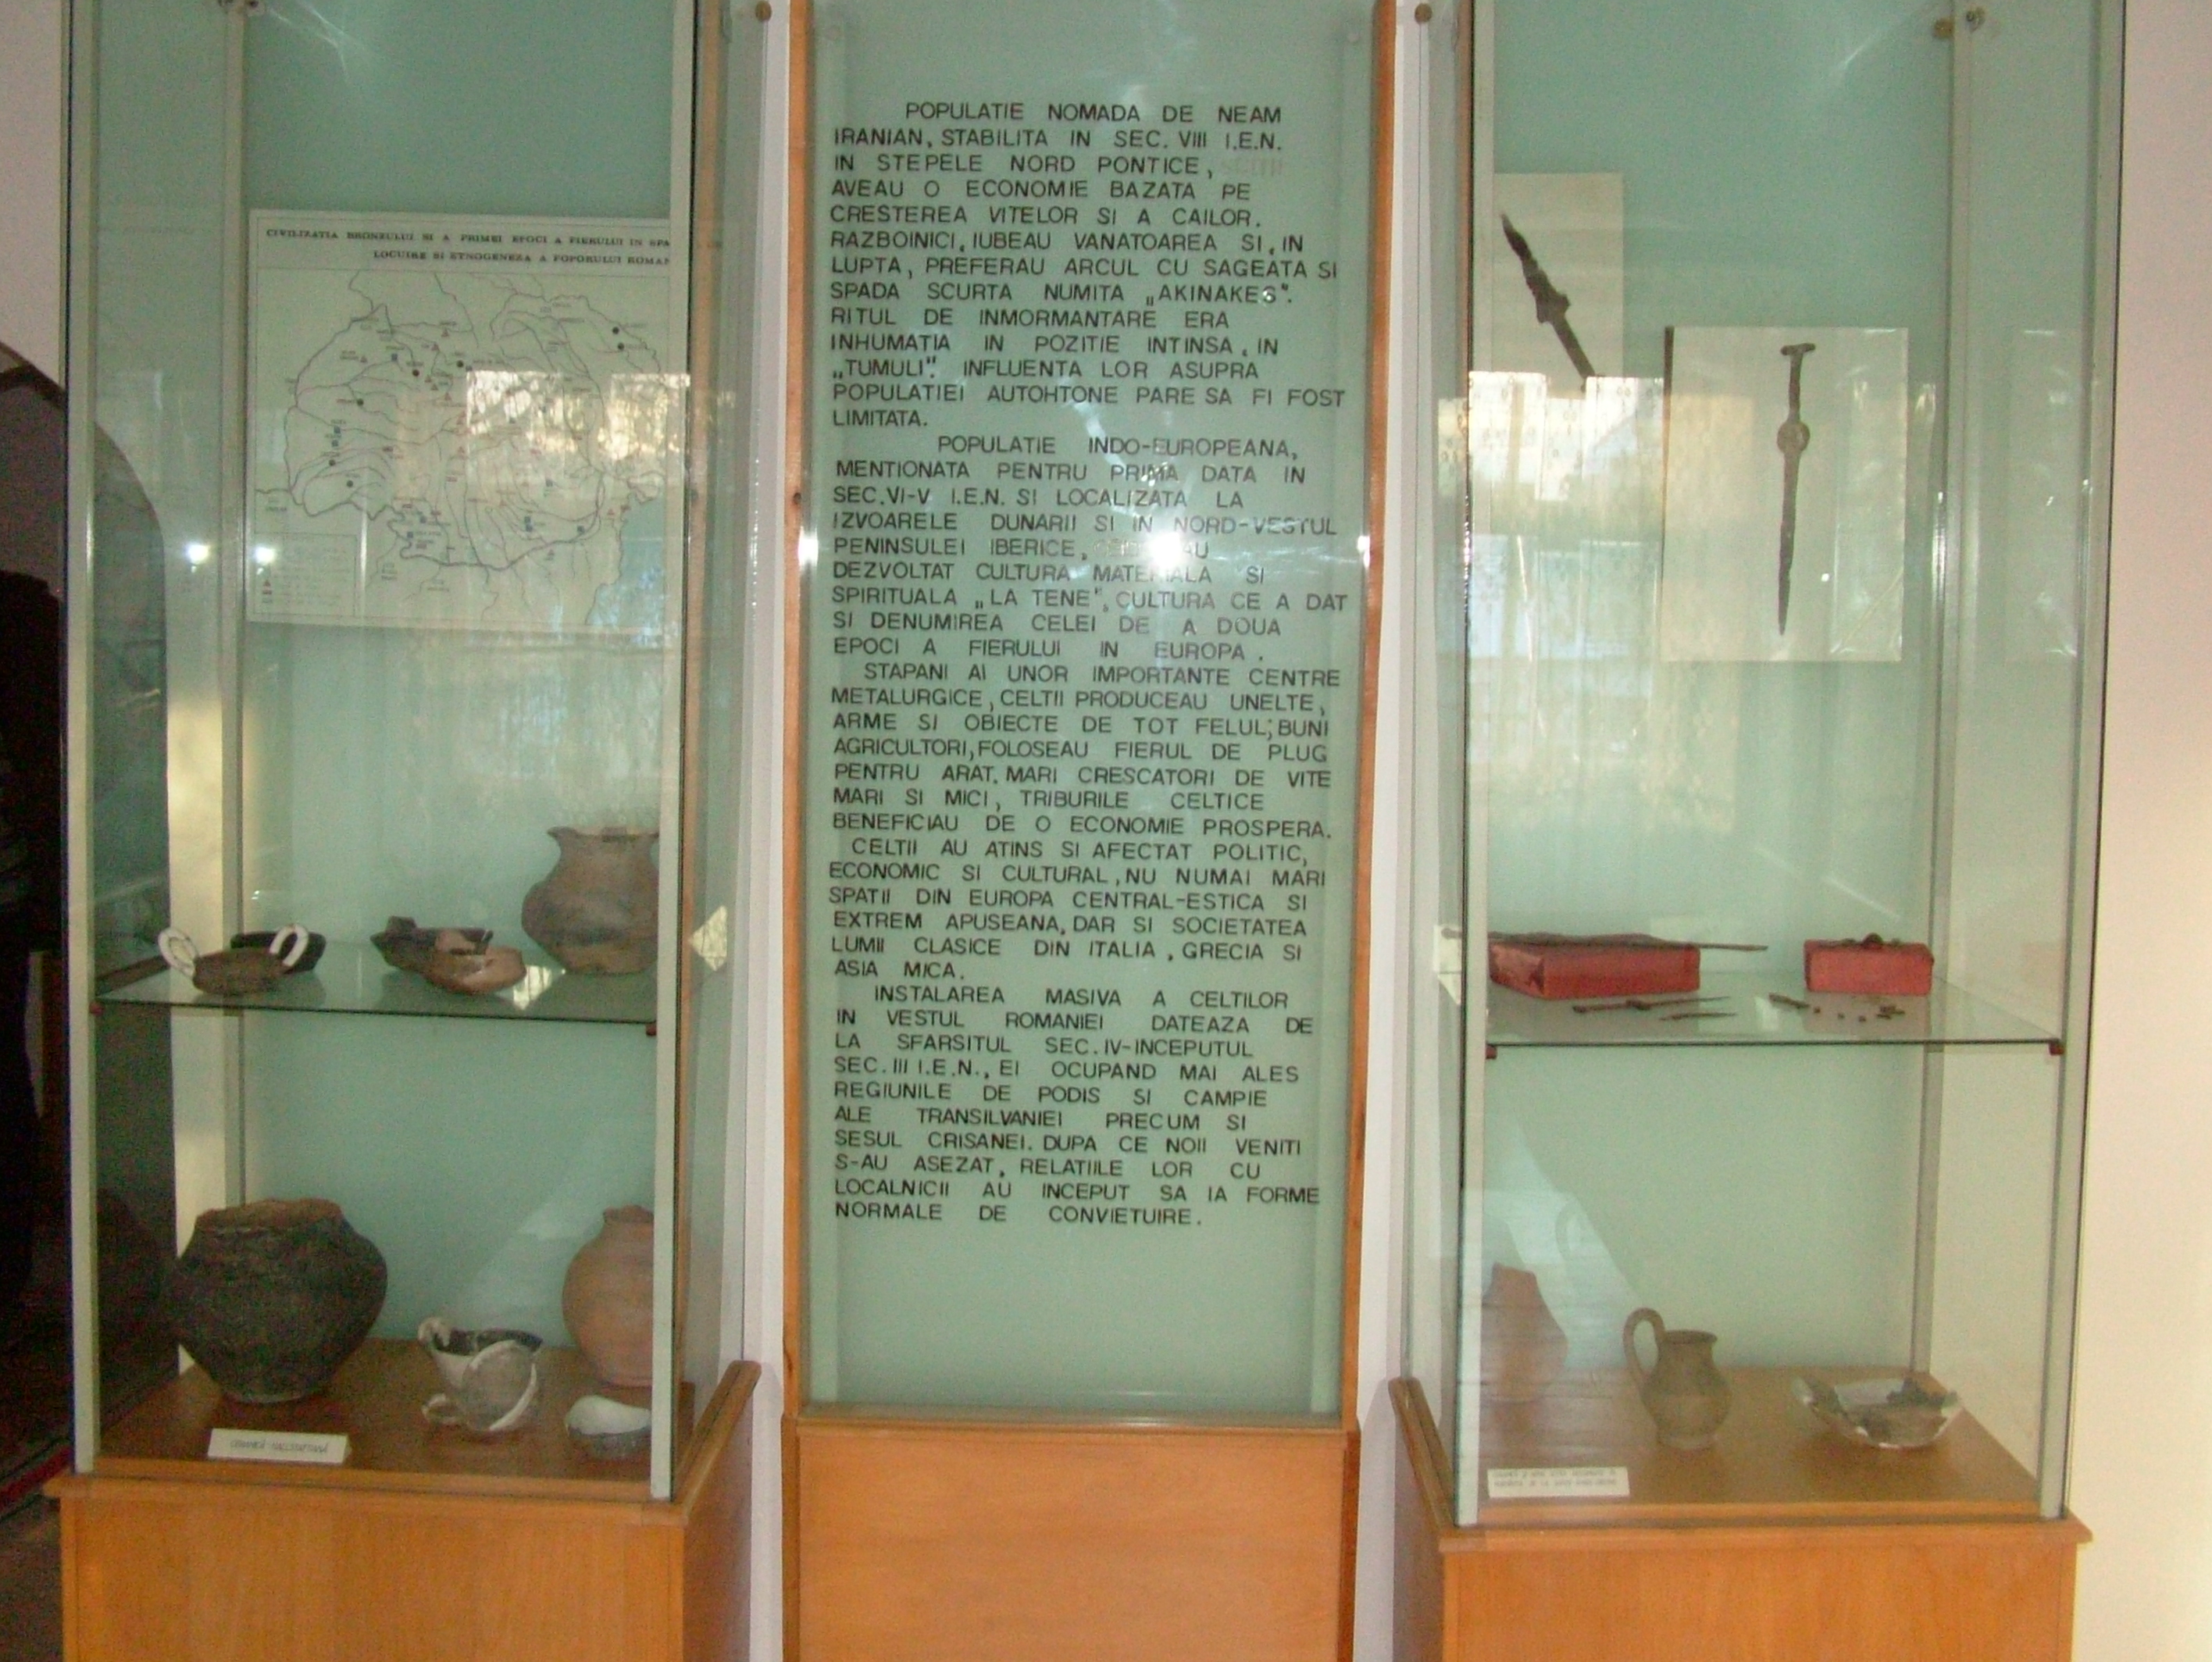 CIVILIZATIA BRONZULUI SI A PRIMEI EPOCI A FIERULUI IN SPA
LOCUIRE SI ETNOGENEZA A POPORULUI ROMAN
POPULATIE NOMADA DE NEAM
IRANIAN, STABILITA IN SEC. VIII I.E.N.
IN STEPELE NORD PONTICE, SCITII
AVEAU O ECONOMIE BAZATA PE
CRESTEREA VITELOR SI A CAILOR.
RAZBOINICI, IUBEAU VANATOAREA SI, IN
LUPTA, PREFERAU ARCUL CU SAGEATA SI
SPADA SCURTA NUMITA „AKINAKES".
RITUL DE INMORMANTARE ERA
INHUMATIA IN POZITIE INTINSA, IN
„TUMULI". INFLUENTA LOR ASUPRA
POPULATIEI AUTOHTONE PARE SA FI FOST
LIMITATA.
POPULATIE INDO-EUROPEANA,
MENTIONATA PENTRU PRIMA DATA IN
SEC. VI-V I.E.N. SI LOCALIZATA LA
IZVOARELE DUNARII SI IN NORD-VESTUL
PENINSULEI IBERICE, AU
DEZVOLTAT CULTURA MATERIALA SI
SPIRITUALA „LA TENE", CULTURA CE A DAT
SI DENUMIREA CELEI DE A DOUA
EPOCI A FIERULUI IN EUROPA.
STAPANI AI UNOR IMPORTANTE CENTRE
METALURGICE, CELTII PRODUCEAU UNELTE,
ARME SI OBIECTE DE TOT FELUL; BUNI
AGRICULTORI, FOLOSEAU FIERUL DE PLUG
PENTRU ARAT. MARI CRESCATORI DE VITE
MARI SI MICI, TRIBURILE CELTICE
BENEFICIAU DE O ECONOMIE PROSPERA.
CELTII AU ATINS SI AFECTAT POLITIC,
ECONOMIC SI CULTURAL, NU NUMAI MARI
SPATII DIN EUROPA CENTRAL-ESTICA SI
EXTREM APUSEANA, DAR SI SOCIETATEA
LUMII CLASICE DIN ITALIA, GRECIA SI
ASIA MICA.
INSTALAREA MASIVA A CELTILOR
IN VESTUL ROMANIEI DATEAZA DE
LA SFARSITUL SEC. IV-INCEPUTUL
SEC. III I.E.N., EI OCUPAND MAI ALES
REGIUNILE DE PODIS SI CAMPIE
ALE TRANSILVANIEI PRECUM SI
SESUL CRISANEI. DUPA CE NOII VENITI
S-AU ASEZAT, RELATIILE LOR CU
LOCALNICII AU INCEPUT SA IA FORME
NORMALE DE CONVIETUIRE.
CERAMICĂ HALLSTATTIANĂ